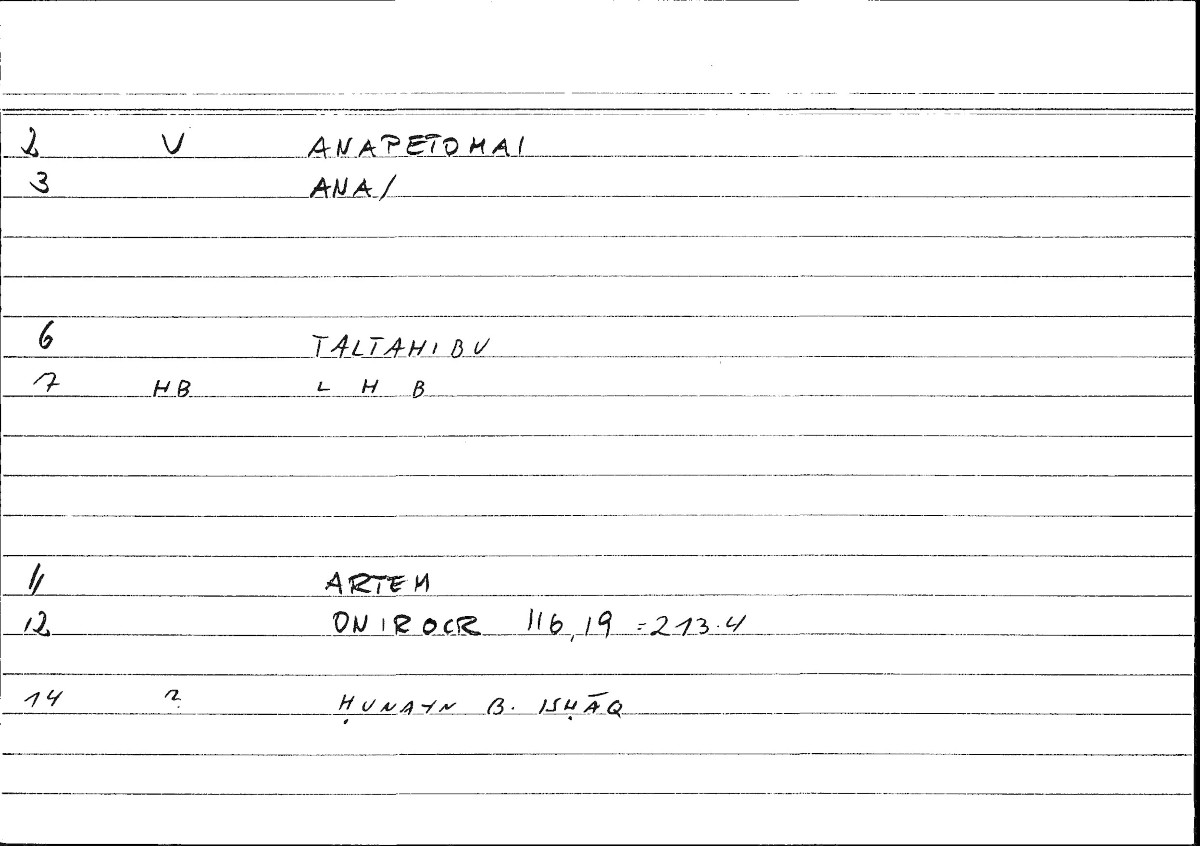 2 V ANAPETOMAI
3 ANA/
6 TALTAHIBU
7 HB L H B
11 ARTEM
12 ONIROCR 116,19 =213.4
14 ? ḤUNAYN B. ISḤĀQ